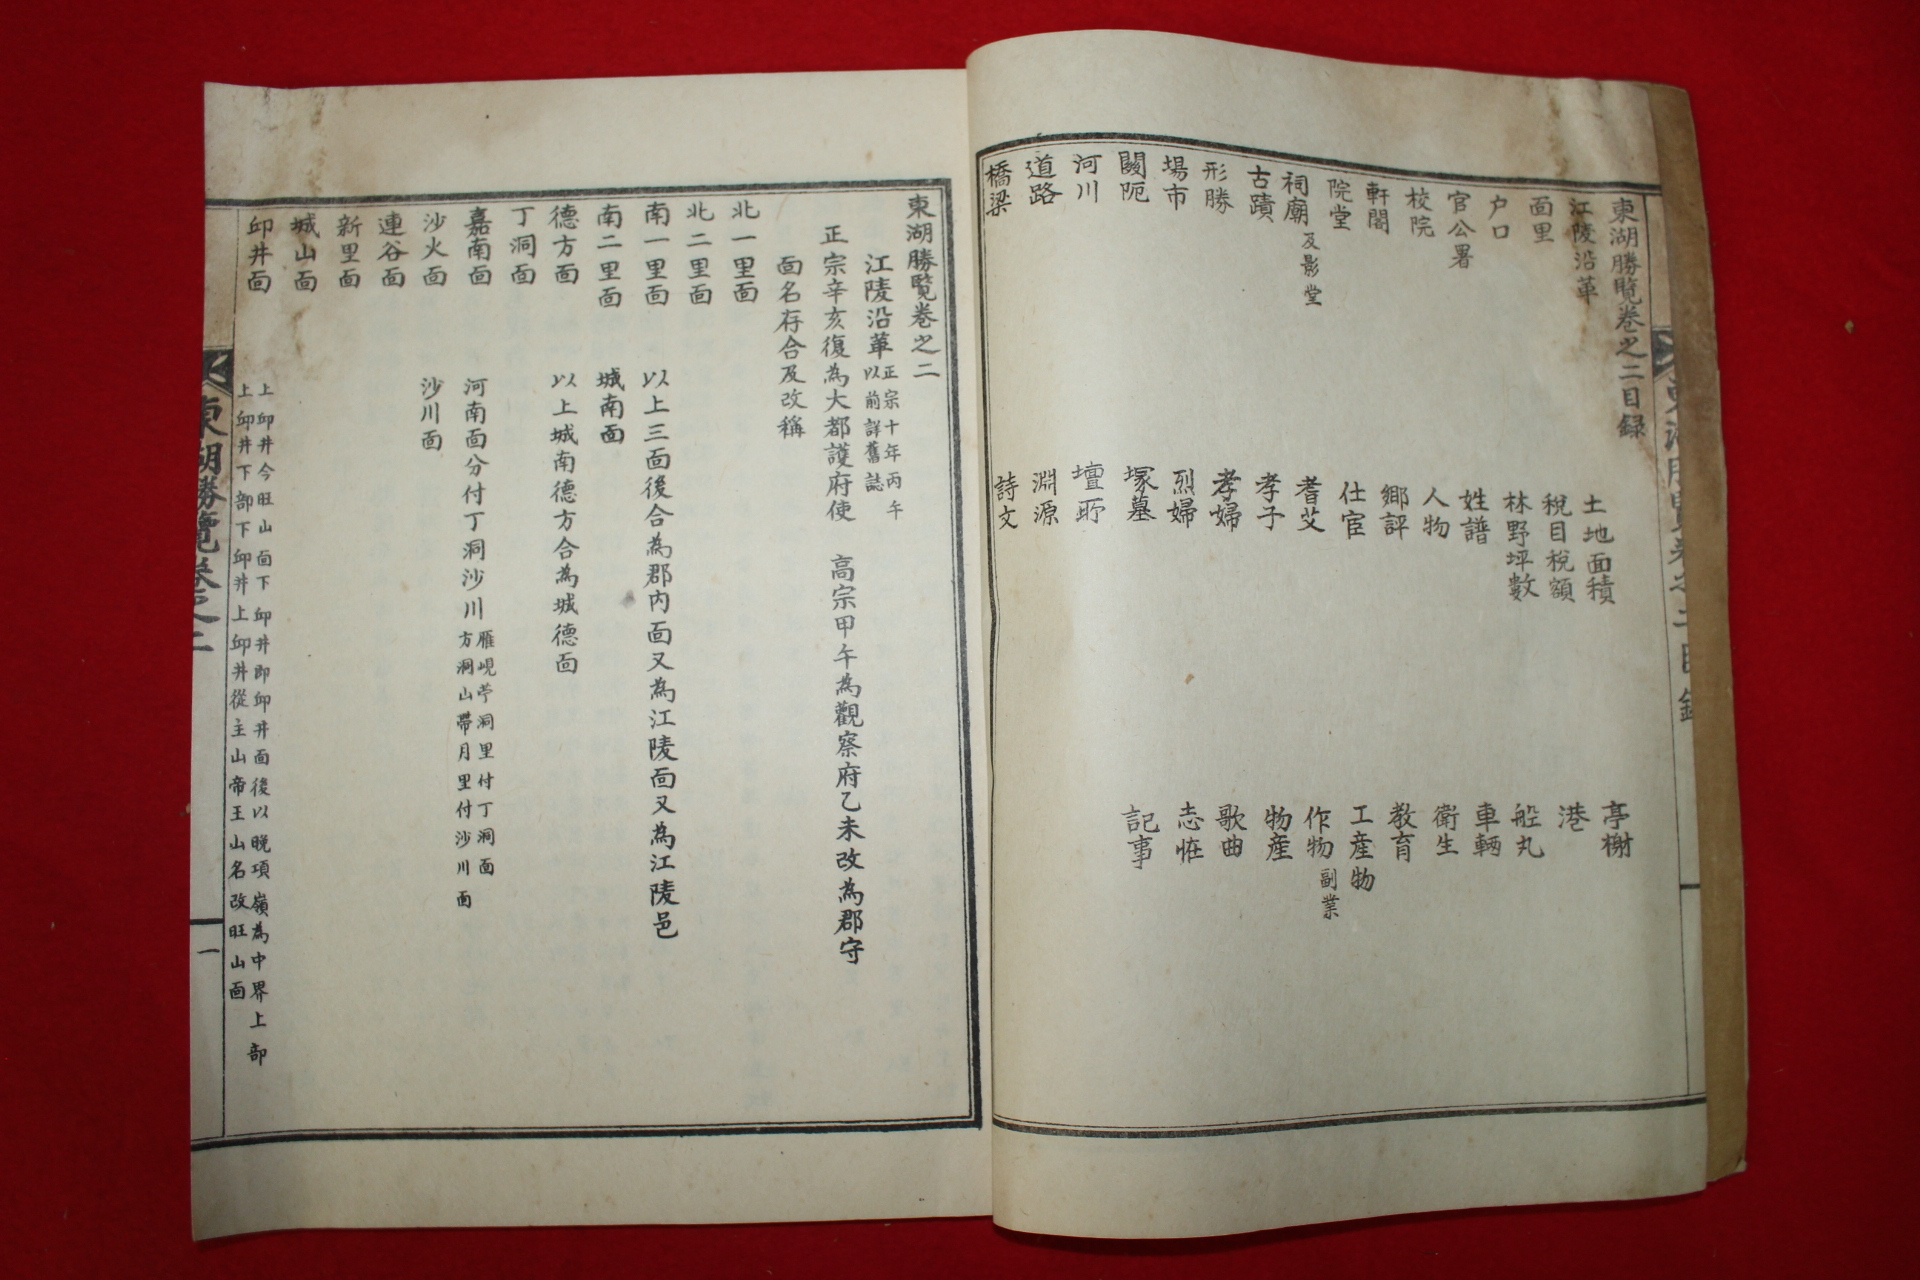 東湖勝覽卷之二目録
江陵沿革
面里
户口
官公署
校院
軒閣
院堂
祠廟及影堂
古蹟
形勝
場市
關阨
河川
道路
橋梁
土地面積
稅目稅額
林野坪數
姓譜
人物
鄉評
仕宦
耆艾
孝子
孝婦
烈婦
塚墓
壇
淵源
詩文
亭榭
港
船丸
車輌
衛生
教育
工産物
作物副業
物産
歌曲
志恠
記事
東湖勝覽卷之二
江陵沿革正宗十年丙午以前詳舊誌
正宗辛亥復為大都護府使 高宗甲午為觀察府乙未改為郡守
面名存合及改稱
北一里面
北二里面
南一里面 以上三面後合為郡内面又為江陵面又為江陵邑
南二里面 城南面
德方面 以上城南德方合為城德面
丁洞面
嘉南面 河南面分付丁洞沙川雁峴苧洞里付丁洞面方洞山帶月里付沙川面
沙火面 沙川面
連谷面
新里面
城山面
邱井面 上邱井今旺山面下邱井即邱井面後以晚項嶺為中界上部上邱井下部下邱井上邱井從主山帝王山名改旺山面
東湖勝覽卷之二
一